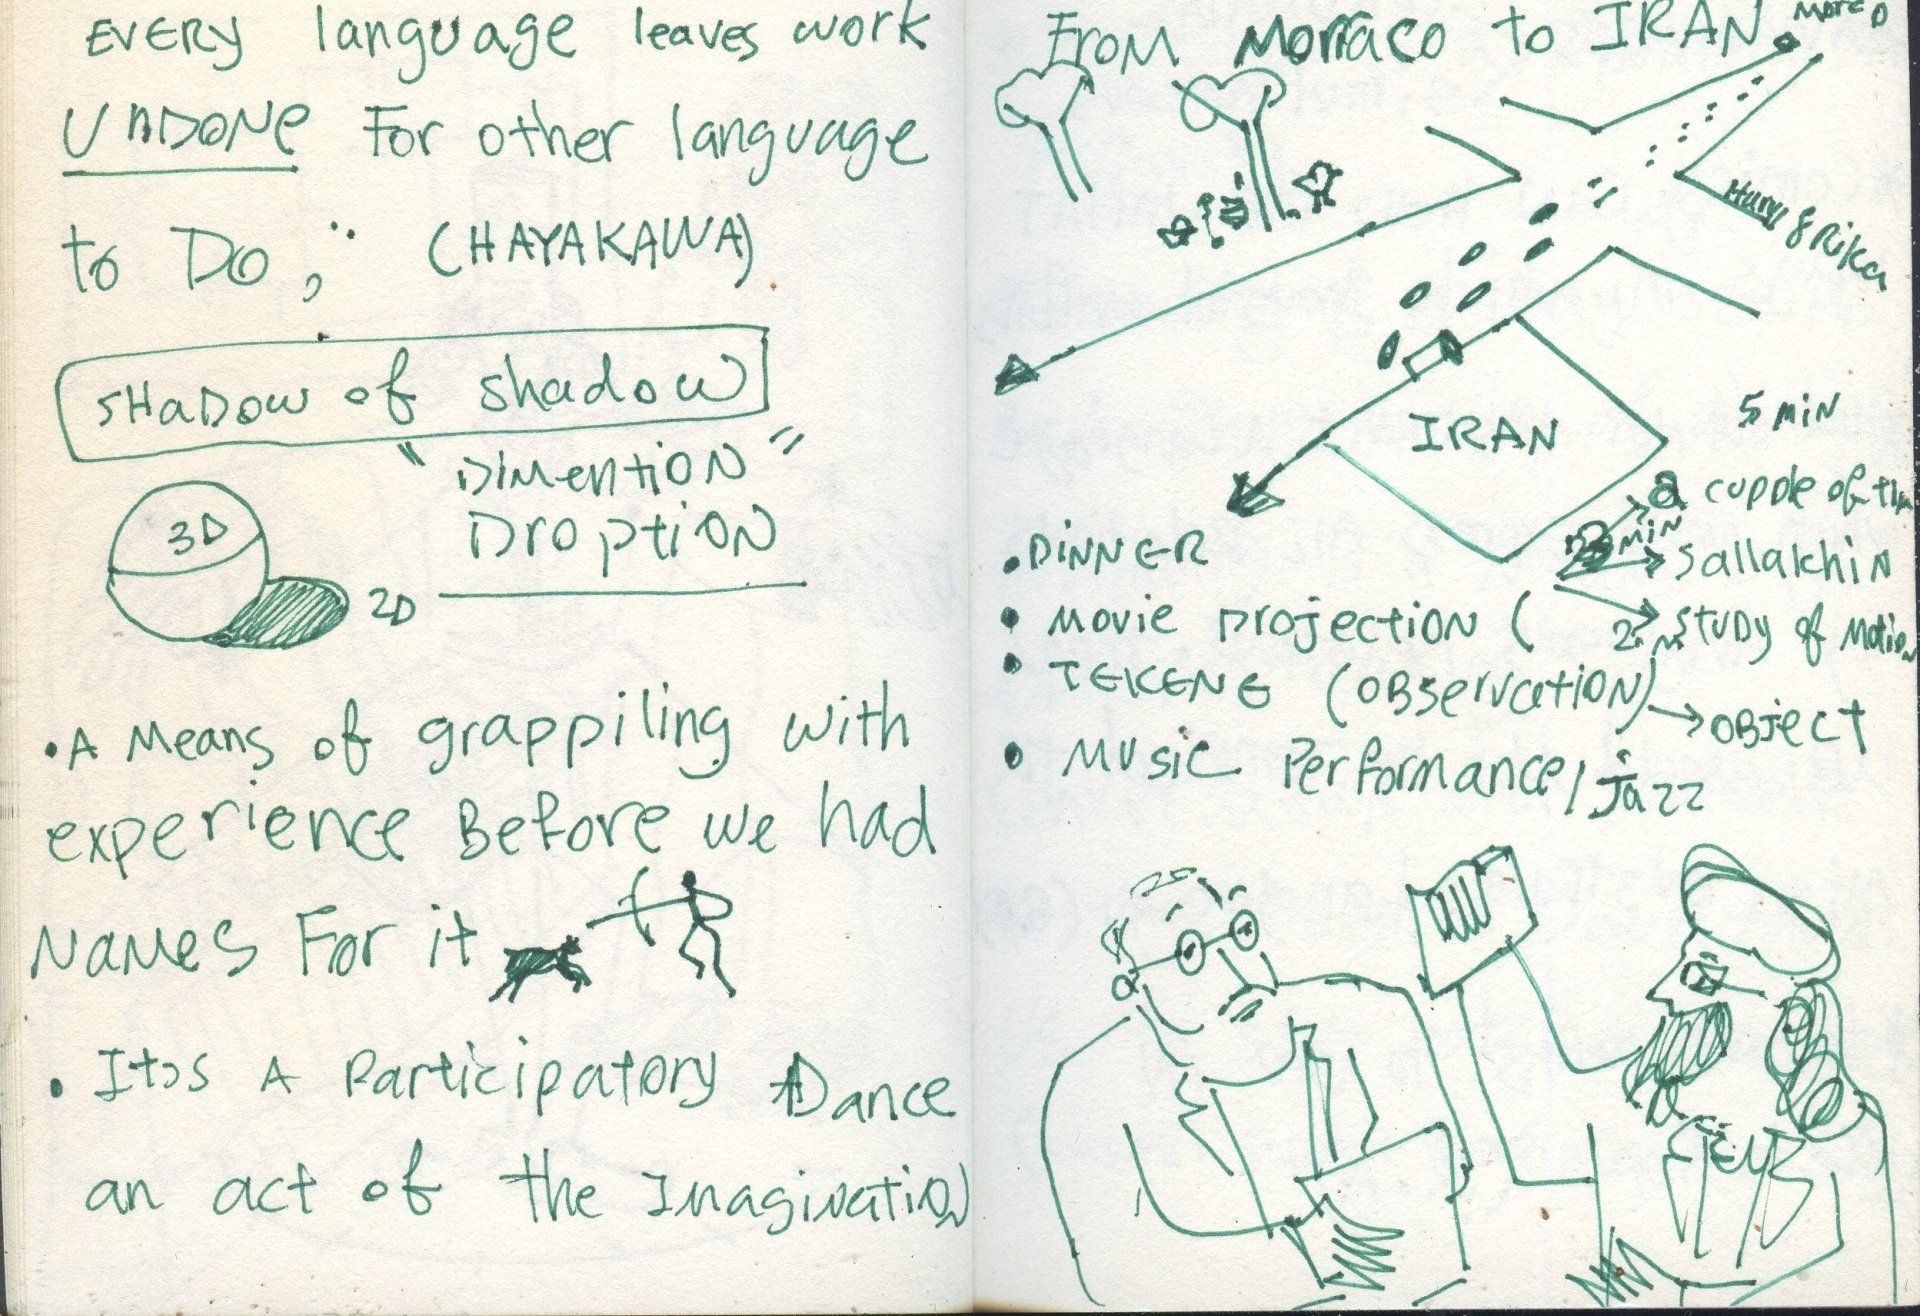 EVERY language leaves work
UNDONE For other language
to Do," (HAYAKAWA)
SHADOW of shadow
"DIMENTION"
DROPTION
3D
2D
• A Means of grappiling with
experience Before we had
NAMES For it
• It's A Participatory Dance
an act of the Imagination
From Morraco to IRAN
& Rika
IRAN
5 MIN
a cupple of
MIN
sallakhin
study of Motion
• DINNER
• MOVIE Projection (
• TEKENE (OBSERVATION)
→ OBJECT
• MUSIC Performance / jazz